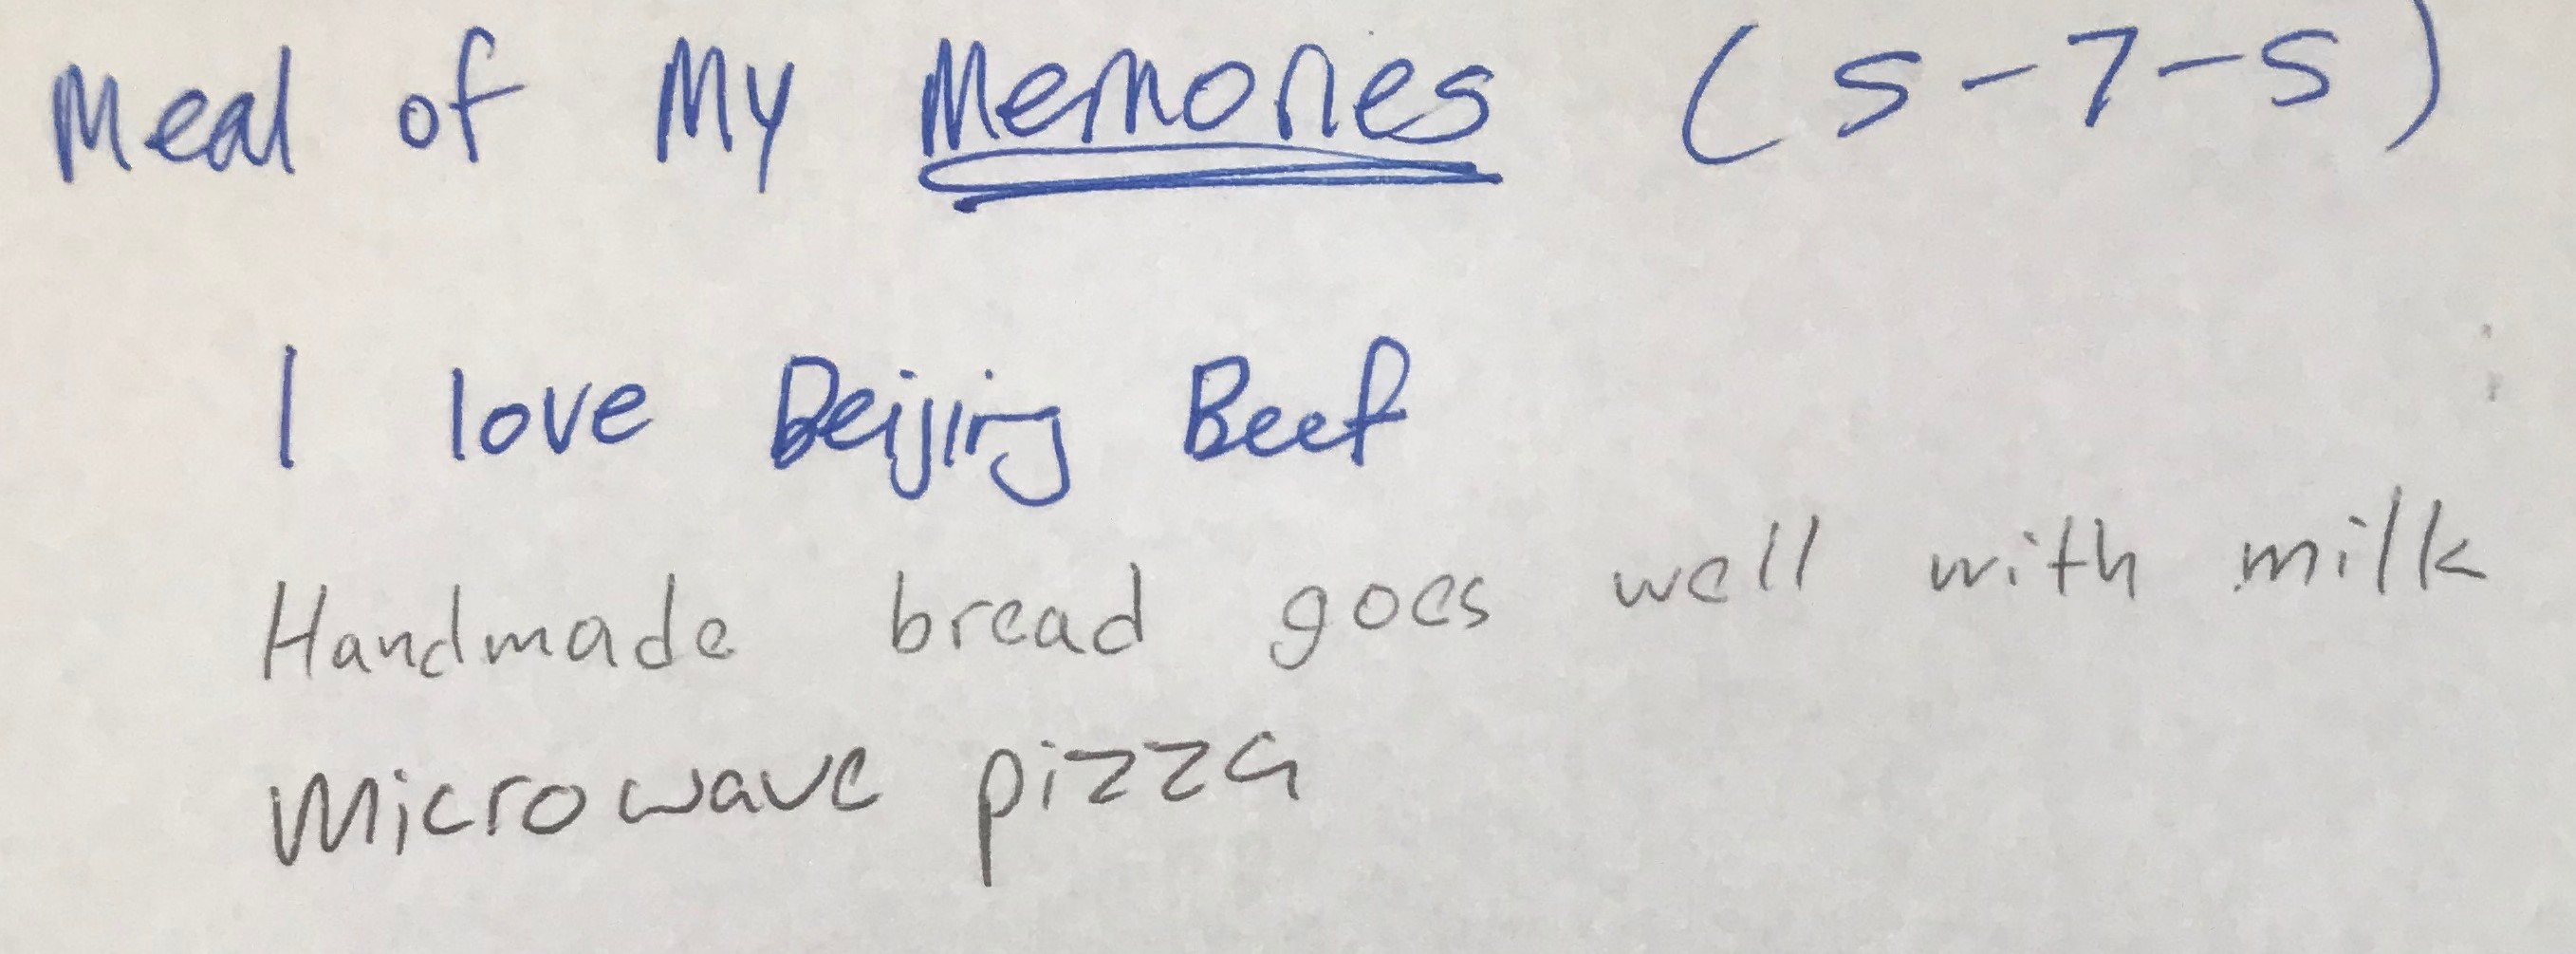 Meal of My Memories (5-7-5)
I love Beijing Beef
Handmade bread goes well with milk
Microwave pizza